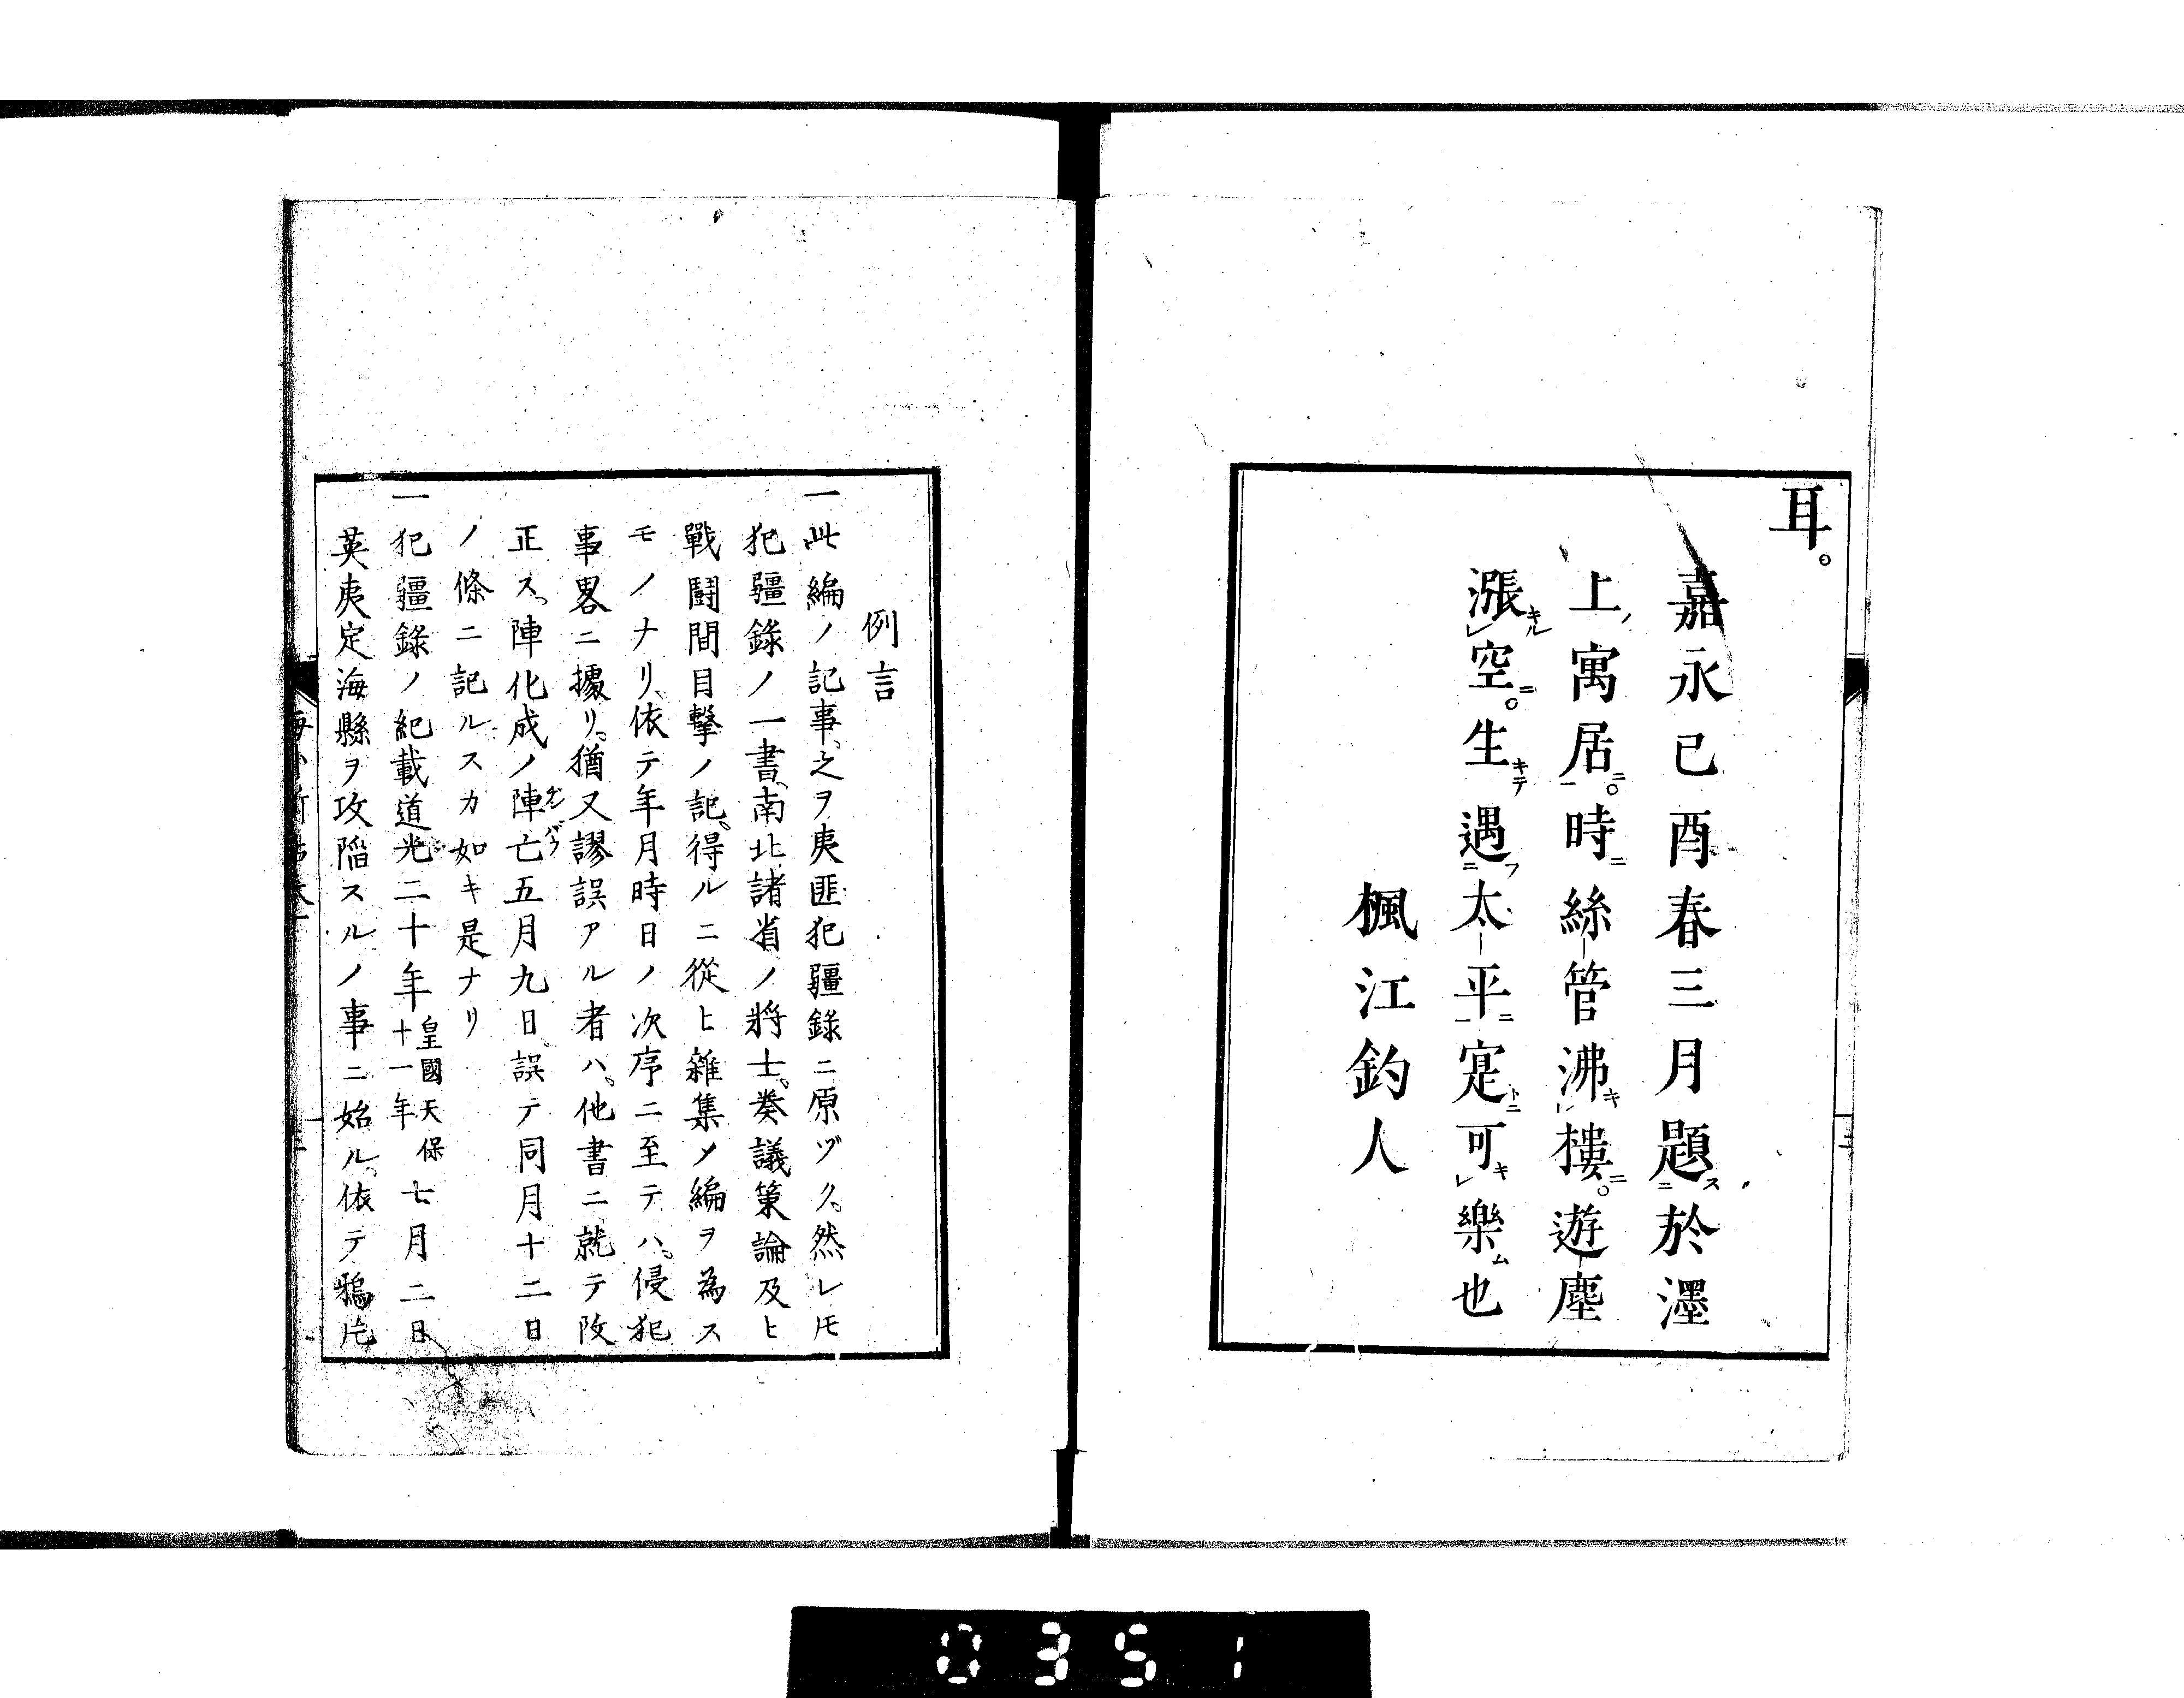 耳。
嘉永己酉春三月題於墨
上寓居。時絲管沸樓。遊塵
漲空。生遇太平寔可樂也
楓江釣人
例言
一此編ノ記事、之ヲ夷匪犯疆錄ニ原ヅク。然レ𪜈
犯疆錄ノ一書、南北諸省ノ將士。奏議策論及ヒ
戰鬪間目擊ノ記。得ルニ從ヒ雜集〆編ヲ為ス
モノナリ、依テ年月時日ノ次序ニ至テハ。侵犯
事畧ニ據リ。猶又謬誤アル者ハ。他書ニ就テ改
正ス、陣化成ノ陣亡五月九日、誤テ同月十二日
ノ條ニ記ルスカ如キ是ナリ
一犯疆錄ノ紀載道光二十年皇國天保十一年七月二日
英夷定海縣ヲ攻陷スルノ事ニ始ル。依テ鴉片
0351